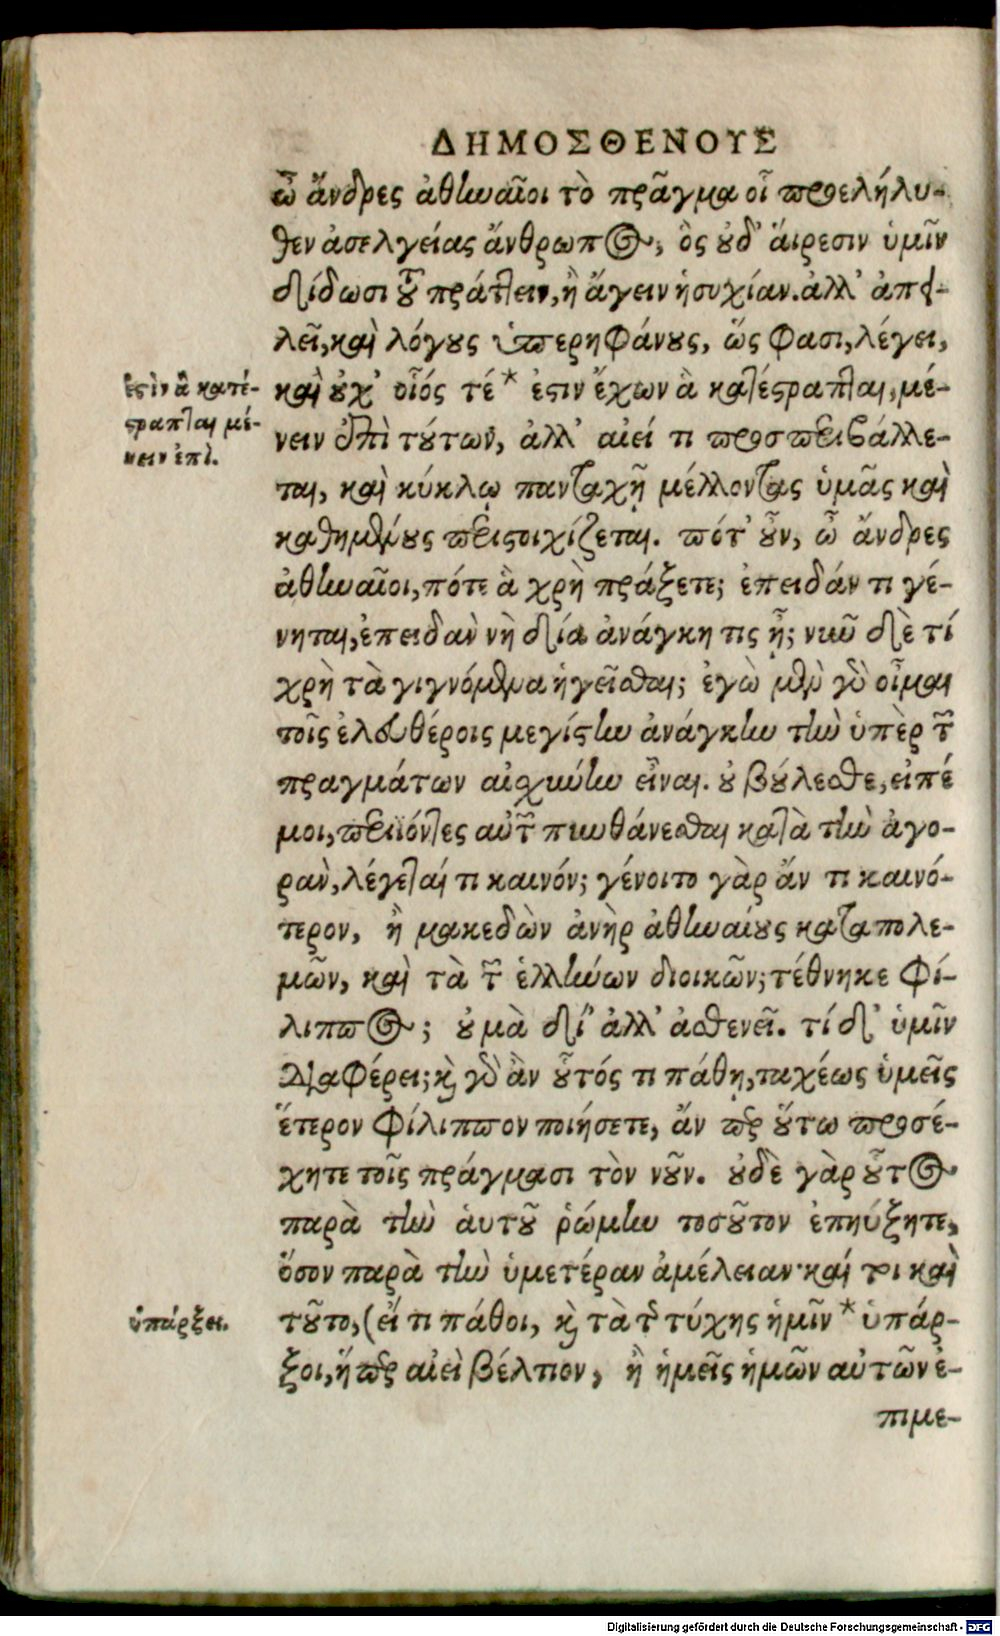 ΔΗΜΟΣΘΕΝΟΥΣ
ὦ ἄνδρες ἀθηναῖοι τὸ πρᾶγμα οἷ προελήλυ-
θεν ἀσελγείας ἄνθρωπος, ὃς οὐδ' ἅιρεσιν ὑμῖν
δίδωσι τοῦ πράττειν, ἢ ἄγειν ἡσυχίαν. ἀλλ' ἀπει-
λεῖ, καὶ λόγους ὑπερηφάνους, ὥς φασι, λέγει,
καὶ οὐχ' οἷός τέ* ἐστιν ἔχων ἃ κατέστραπται, μέ-
νειν ἐπὶ τούτων, ἀλλ' αἰεί τι προσπεριβάλλε-
ται, καὶ κύκλῳ πανταχῇ μέλλοντας ὑμᾶς καὶ
καθημένους περιστοιχίζεται. πότ' οὖν, ὦ ἄνδρες
ἀθηναῖοι, πότε ἃ χρὴ πράξετε; ἐπειδάν τι γέ-
νηται, ἐπειδὰν νὴ δία ἀνάγκη τις ᾖ; νῦν δὲ τί
χρὴ τὰ γιγνόμενα ἡγεῖσθαι; ἐγὼ μὲν γὰρ οἶμαι
τοῖς ἐλευθέροις μεγίστην ἀνάγκην τὴν ὑπὲρ τῶν
πραγμάτων αἰσχύνην εἶναι. οὐ βούλεσθε, εἰπέ
μοι, περιϊόντες αὑτῶν πυνθάνεσθαι κατὰ τὴν ἀγο-
ρὰν, λέγεταί τι καινόν; γένοιτο γὰρ ἄν τι καινό-
τερον, ἢ μακεδὼν ἀνὴρ ἀθηναίους καταπολε-
μῶν, καὶ τὰ τῶν ἑλλήνων διοικῶν; τέθνηκε Φί-
λιππος; οὐ μὰ δί' ἀλλ' ἀσθενεῖ. τί δ' ὑμῖν
διαφέρει; καὶ γὰρ ἂν οὗτός τι πάθῃ, ταχέως ὑμεῖς
ἕτερον Φίλιππον ποιήσετε, ἄν περ οὕτω προσέ-
χητε τοῖς πράγμασι τὸν νοῦν. οὐδὲ γὰρ οὗτος
παρὰ τὴν ἁυτοῦ ῥώμην τοσοῦτον ἐπηύξητε,
ὅσον παρὰ τὴν ὑμετέραν ἀμέλειαν· καί τοι καὶ
τοῦτο, (εἴ τι πάθοι, καὶ τὰ τῆς τύχης ἡμῖν* ὑπάρ-
ξοι, ἥπερ αἰεὶ βέλτιον, ἢ ἡμεῖς ἡμῶν αὐτῶν ἐ-
πιμε-
ἐστὶν ἃ κατέ-
στραπται μέ-
νειν ἐπὶ.
ὑπάρξει.
Digitalisierung gefördert durch die Deutsche Forschungsgemeinschaft - DFG